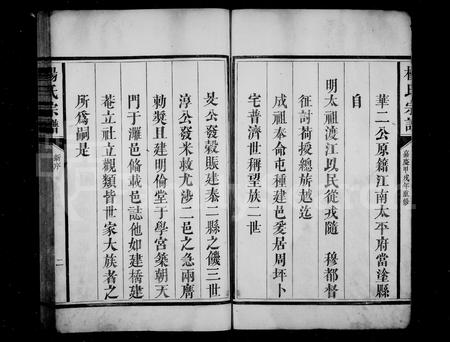 楊氏宗譜
嘉慶甲戌年重修
華二公原籍江南太平府當塗縣
自
明太祖渡江以民從戎隨 穆都督
征討荷授總旂越迄
成祖奉命屯種建邑爰居周坪卜
宅普濟世稱望族二世
旻公發穀賬建泰二縣之饑三世
淳公發米救尤涉二邑之急兩膺
勅奬且建明倫堂于學宮築朝天
門于濉邑脩載邑誌他如建橋建
菴立社立觀類皆世家大族者之
所爲嗣是
楊氏宗譜
新序
二